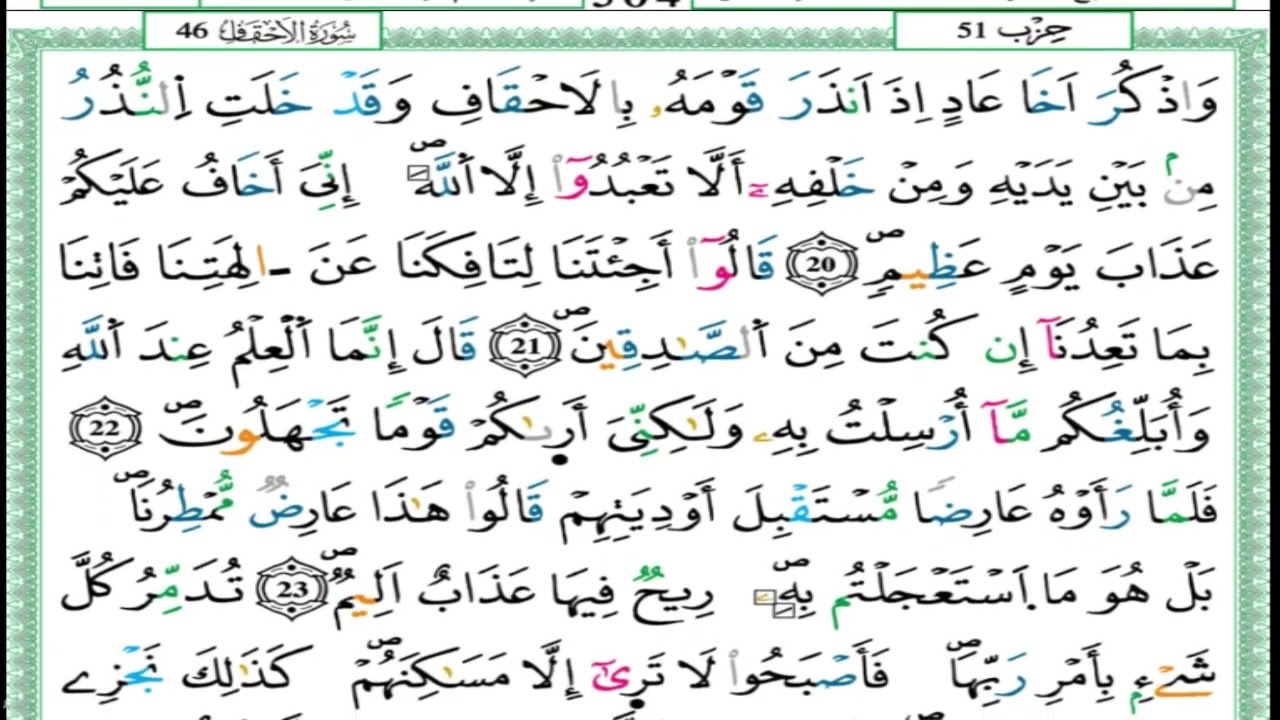 سُورَةُ الاَحْقَافِ 46
حِزْب 51
وَاذْكُرَ اَخَا عَادٍ اِذَ اَنذَرَ قَوْمَهُۥ بِالَاحْقَافِ وَقَدْ خَلَتِ اِ۬لنُّذُرُ
مِنۢ بَيْنِ يَدَيْهِ وَمِنْ خَلْفِهِۦٓ أَلَّا تَعْبُدُوٓاْ إِلَّا اَ۬للَّهَۖ إِنِّيَ أَخَافُ عَلَيْكُمْ
عَذَابَ يَوْمٍ عَظِيمٍۖ 20 قَالُوٓاْ أَجِئْتَنَا لِتَافِكَنَا عَنَ ـالِهَتِنَا فَاتِنَا
بِمَا تَعِدُنَآ إِن كُنتَ مِنَ اَ۬لصَّٰدِقِينَۖ 21 قَالَ إِنَّمَا اَ۬لْعِلْمُ عِندَ اَ۬للَّهِ
وَأُبَلِّغُكُم مَّآ أُرْسِلْتُ بِهِۦ وَلَٰكِنِّيَ أَر۪ىٰكُمْ قَوْماً تَجْهَلُونَۖ 22
فَلَمَّا رَأَوْهُ عَارِضاً مُّسْتَقْبِلَ أَوْدِيَتِهِمْ قَالُواْ هَٰذَا عَارِضٌ مُّمْطِرُنَاۖ
بَلْ هُوَ مَا اَ۪سْتَعْجَلْتُم بِهِۦۖ رِيحٌ فِيهَا عَذَابٌ اَلِيمٌۖ 23 تُدَمِّرُ كُلَّ
شَےْءِۢ بِأَمْرِ رَبِّهَاۖ فَأَصْبَحُواْ لَا تَر۪ىٰٓ إِلَّا مَسَٰكِنَهُمْۖ كَذَٰلِكَ نَجْزِے